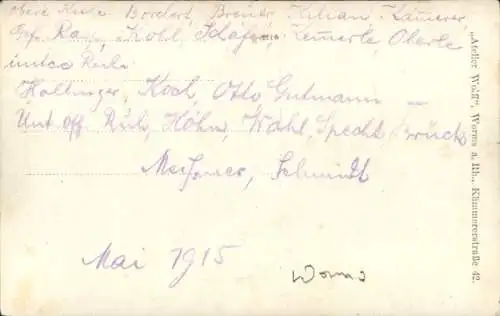 obere Reihe Borchert, Breiner, Kilian, Kämerer,
Gef. Ra, Kohl, Schäfer, Lemerle, Oberle
untere Reihe
Hollinger, Koch, Otto Gutmann
Unt off Ruh, Höhn, Wahl, Specht Brück
Meixner, Schmidt
Mai 1915
Worms
„Atelier Wolff", Worms a. Rh., Kämmererstraße 42.